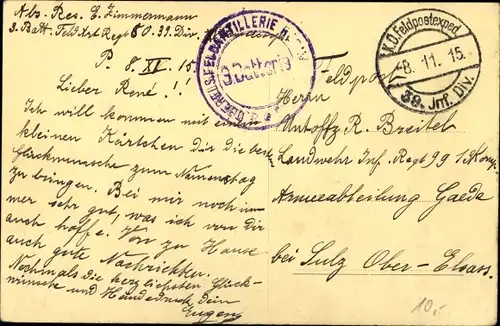 Abs. Res. E. Zimmermann
3. Batt. Feld Art Regt 80. 39. Div.
P. 8. XI. 15
Lieber René!!
Ich will kommen mit
kleinen Kärtchen Dir die
Glückwunsche zum Namenstag
zu bringen. Bei mir noch im
mer sehr gut, was ich von Dir
auch hoffe. Von zu Hause
auch gute Nachrichten.
Nochmals die herzlichsten Glück-
wünsche und Händedruck dein
Eugen
3. Batterie
K.D. Feldpostexped.
8. 11. 15.
39. Inf. Div.
Feldpost
Herrn
Untoffz. R. Breitel
Landwehr Inf. Regt 99 1. Komp.
Armeeabteilung Gaede
bei Sulz Ober-Elsass.
10.-